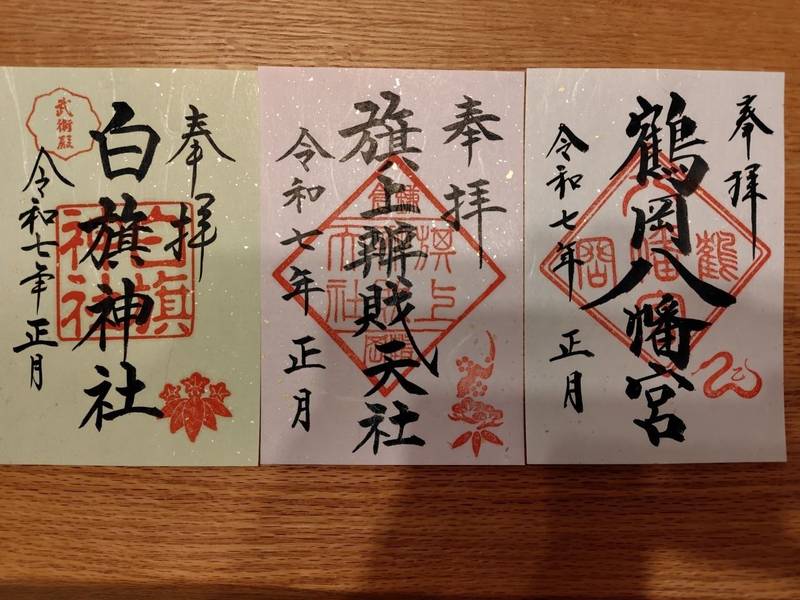 奉拝
鶴岡八幡宮
令和七年 正月
奉拝
旗上辨財天社
令和七年 正月
奉拝
白旗神社
令和七年 正月
武衛殿
白旗神社